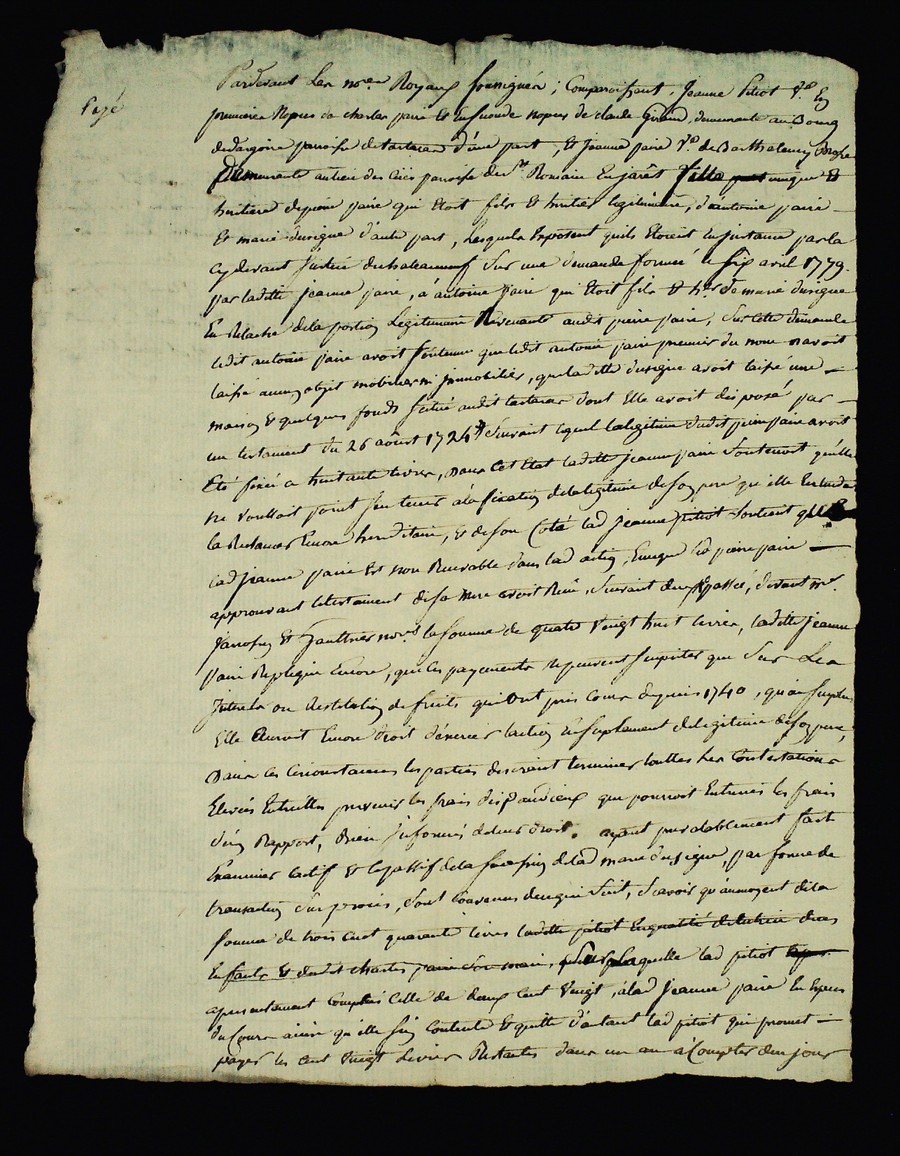 Payé
Pardevant Les no.res Royaux soussignés ; Comparoissant, Jeanne Pitiot V.e En
premieres Nopces de charles paire Et En seconde nopces de claude Giraud, demeurante au Bourg
de dargoire paroisse de tartaras d'une part, Et jeanne paire V.e de Barthelemy
Demeurante au lieu des paroisse de S.t Romain En jarêt fille unique Et
heritiere de pierre paire qui Etoit fils Et heritier legitimaire, d'antoine paire
Et marie dusigne d'autre part, Lesquels Exposent quils Etoient En instance par la
cy devant justice de chateauneuf sur une demande formée le six avril 1779.
par laditte jeanne paire, a antoine paire qui Etoit fils Et h.er de marie dusigne
En Relache de la portion Legitimaire Revenante audit pierre paire, sur cette demande
ledit antoine paire avoit soutenu que ledit antoine paire premier du nom n'avoit
laissé aucun objet mobilier ni immobilier, que laditte dusigne avoit laissé une
maison Et quelques fonds situé audit tartaras dont Elle avoit disposé par
un testament du 26 août 1724 suivant lequel la legitime dudit pierre paire avoit
Eté fixée a huitante livres, Dans Cet Etat laditte jeanne paire soutenoit qu'elle
ne vouloit point s'en tenir a la fixation de la legitime de son pere qu'elle Entendoit
la Reclamer Encore hereditaire, Et de son Coté lad jeanne pitiot soutient que
lad jeanne paire Est non Recevable dans lad action, puisque led pierre paire
approuvant le testament de sa mere avoit Reçu, suivant deux passées, devant m.e
Et Gaultier no.res la somme de quatre vingt huit livres, laditte jeanne
paire Replique Encore, que les payements ne peuvent s'imputer que sur Les
jnterets ou Restitution de fruits qui Ont pris Cours depuis 1740, qu'au surplus
Elle Auroit Encore droit d'exercer l'action En suplement de legitime de son pere,
Dans ces circonstances les parties desirant terminer touttes Les Contestations
Elevées Entr'elles prevenir les frais dispendieux que pourroit Entrainer les frais
d'un Rapport, Bien jnformés de leur droit, ayant prealablement fait
Examiner l'actif Et le passif de la succession de lad marie dusigne, par forme de
transaction sur procès, sont convenues de ce qui suit, sçavoir qu'au moyen de la
somme de trois cent quarante livres laditte pitiot En qualité de tutrice de ses
Enfants Et dudit charles paire son mari, sur laquelle lad pitiot
presentement Compté Celle de deux Cent Vingt, a lad Jeanne paire En Especes
du Cours ainsi qu'elle s'en Contente Et quitte d'autant lad pitiot qui promet
payer les cent vingt Livres Restantes dans un an a Compter de ce jour